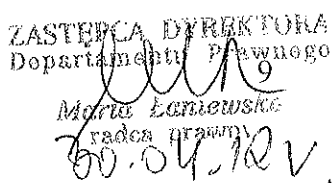 ZASTĘPCA DYREKTORA
Departamentu Prawnego
Maria Łaniewska
radca prawny
30.04.12